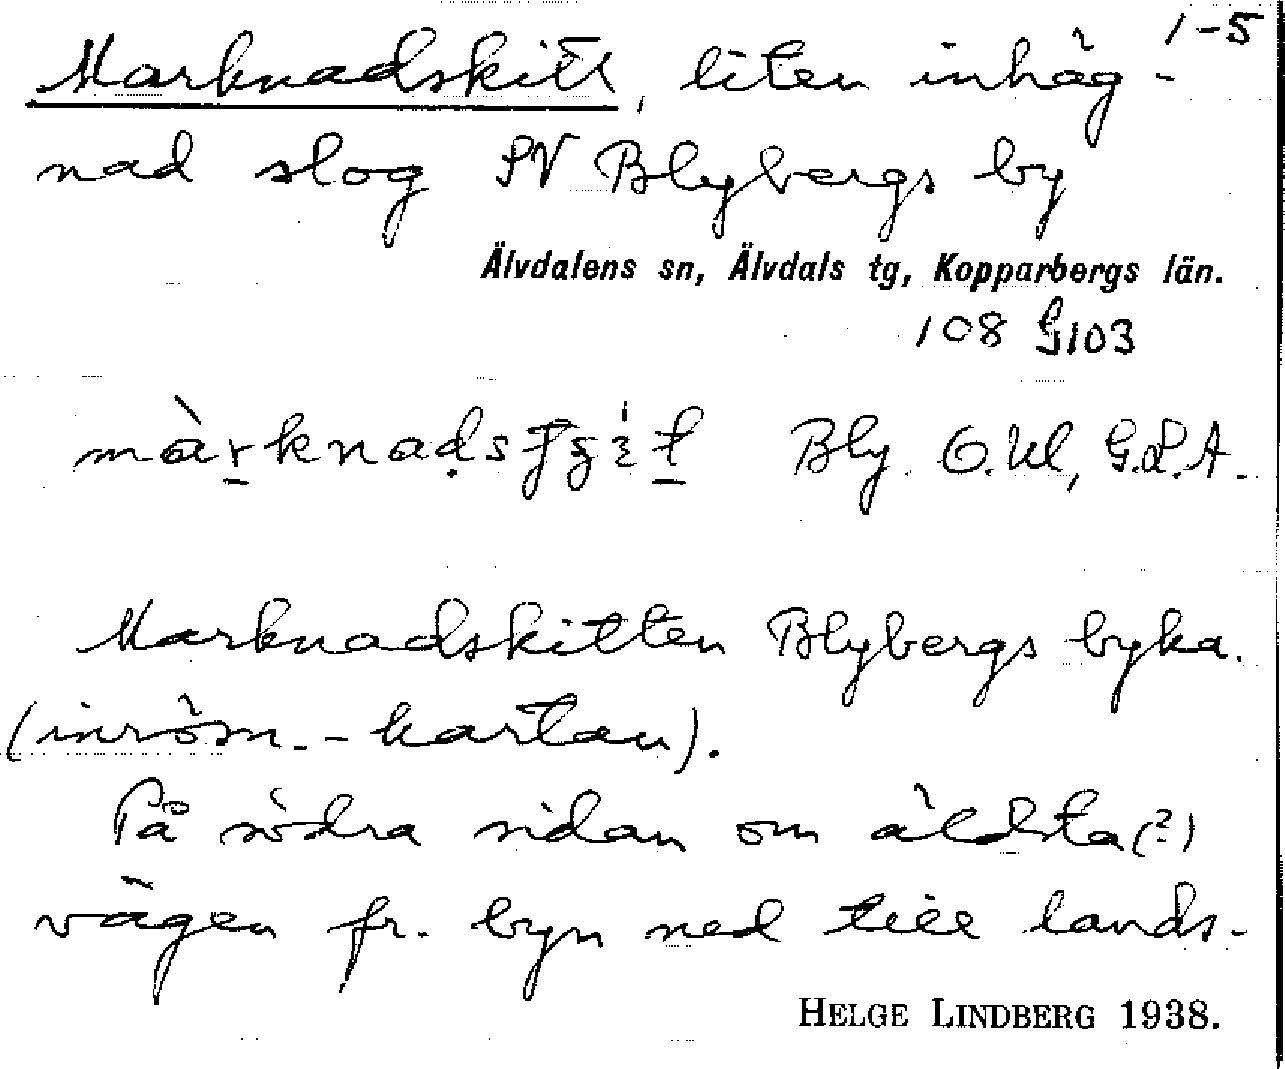 1-5
Marknadskitt, liten inhäg-
nad slog SV Blybergs by
Älvdalens sn, Älvdals tg, Kopparbergs län.
108 G103
Bly. O.Ul, G.L.A.
Marknadskitten Blybergs byka.
(inröm.-kartan).
På södra sidan om äldsta(?)
vägen fr. byn ned till lands-
HELGE LINDBERG 1938.